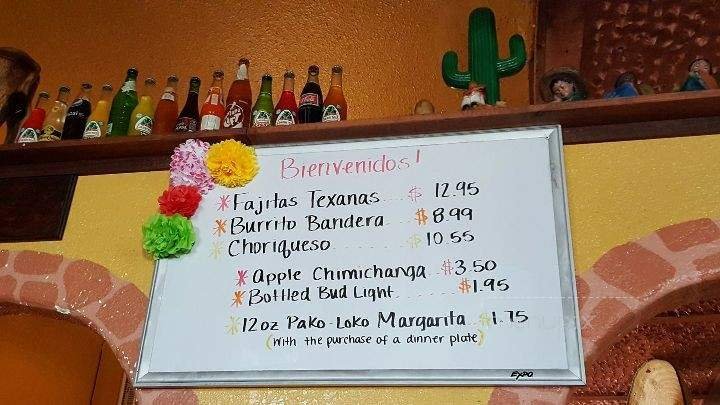 Bienvenidos!
*Fajitas Texanas $ 12.95
*Burrito Bandera $8.99
*Choriqueso $ 10.55
*Apple Chimichanga $3.50
*Bottled Bud Light $1.95
*12oz Pako-Loko Margarita $1.75
(with the purchase of a dinner plate)
EXPO